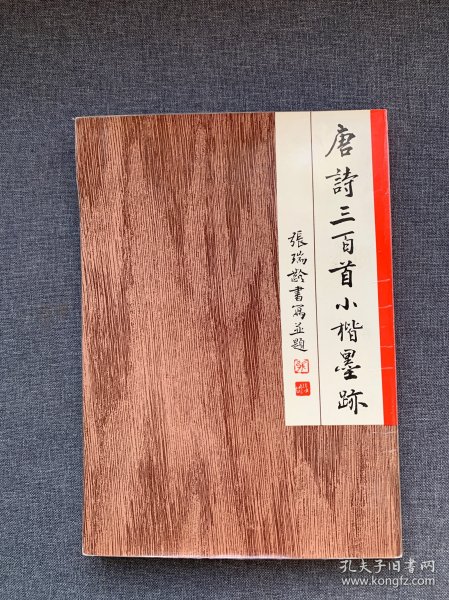 唐詩三百首小楷墨跡
張瑞齡書寫並題
孔夫子旧书网
www.kongfz.com